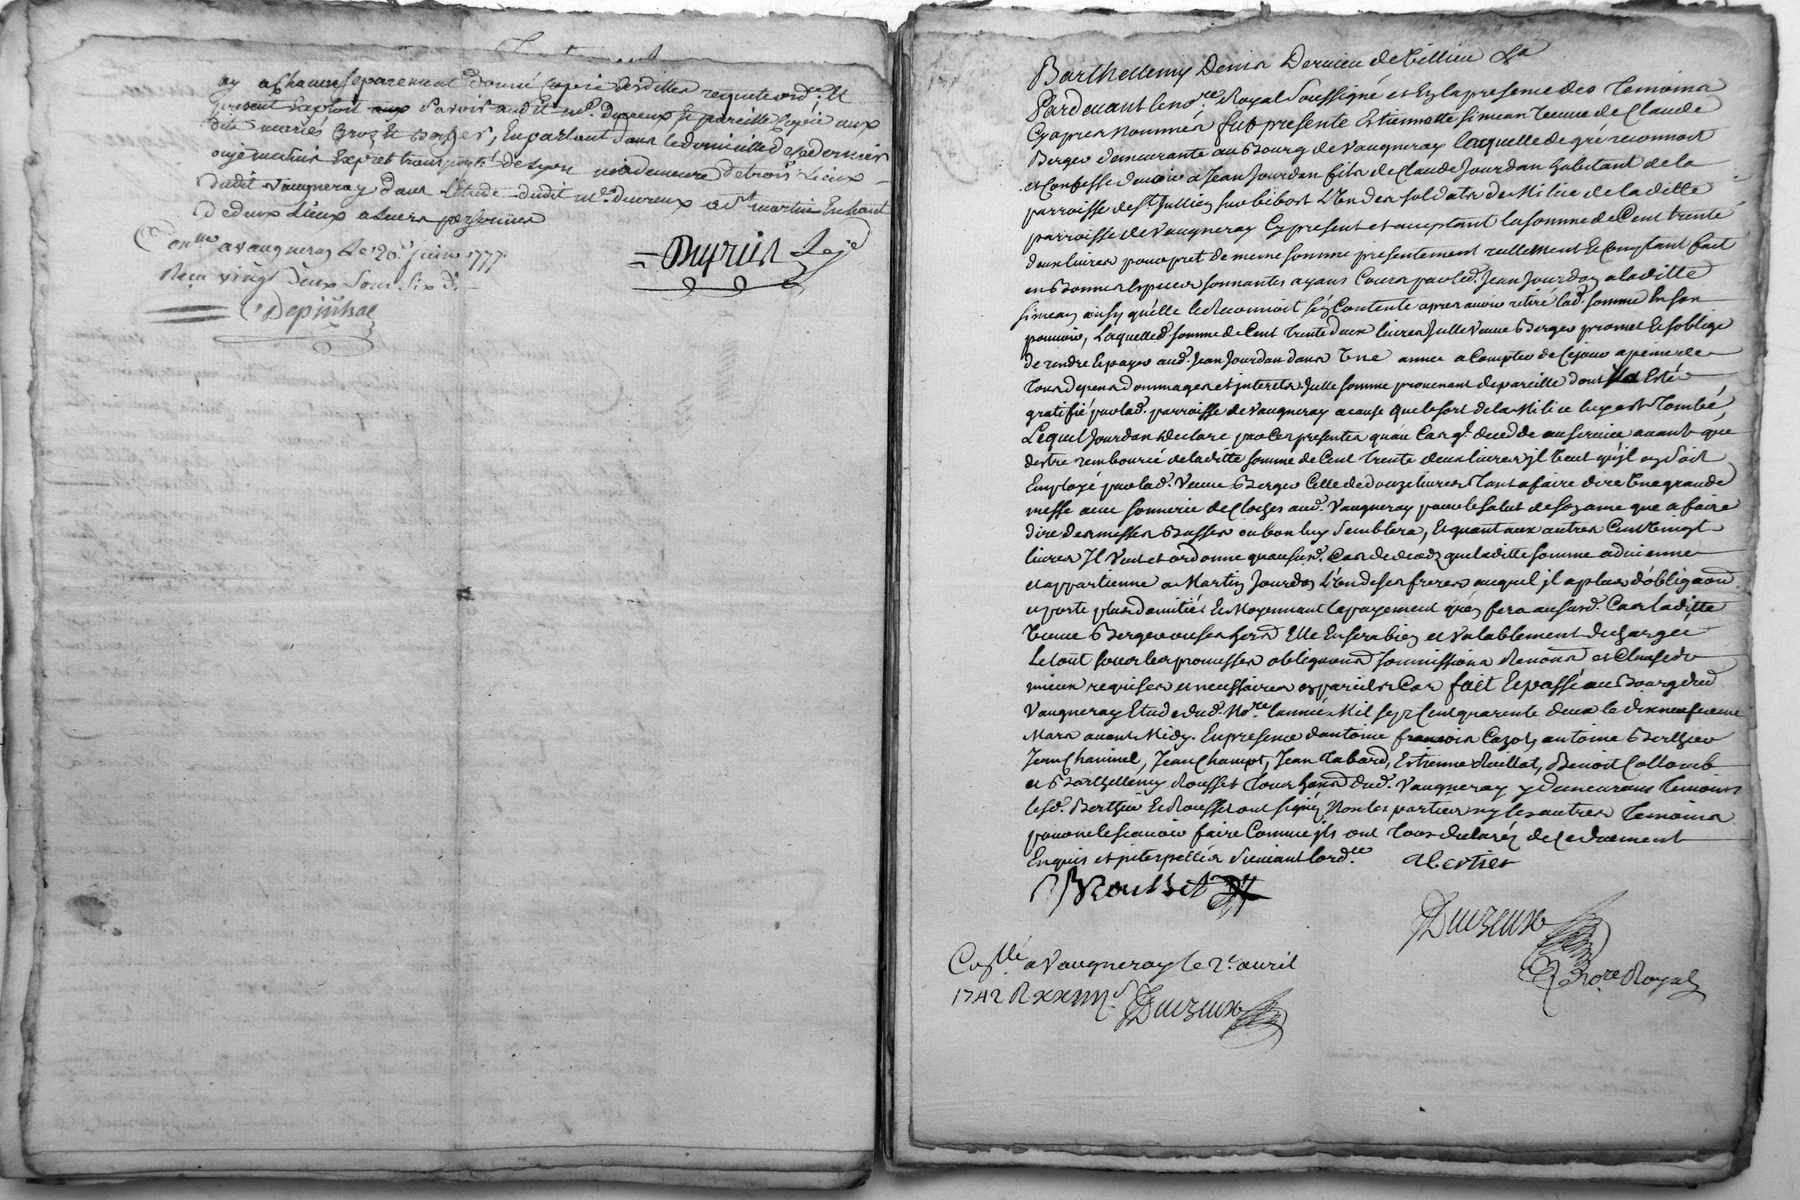 ay a chacun separement donné copie desdittes requete ordce. Et
present Exploit aux Savoir audit me. Duvreux Et pareille Copie aux
dits mariés En parlant dans le domicille de ce dernier
ou je me suis Exprès transporté de Lyon ma demeure de trois Lieux
dudit Vaugneray dans l'Etude dudit me. Duvreux a St martin
de deux Lieux a Leurs personnes
Conlle a vaugneray Le 20. juin 1777
Reçu vingt deux Sous Six d.
Barthellemy Denis
Pardevant le nore. Royal Soussigné et En la presence des Temoins
Cy apres Nommés fut presente Estiennette Simean veuve de Claude
Berger demeurante au Bourg de Vaugneray Laquelle de gré reconnoit
et Confesse devoir a Jean Jourdan fils de Claude Jourdan habitant de la
parroisse de St Jullien sur bibost L'un des soldats de Milice de la ditte
parroisse de Vaugneray Cy present et acceptant la somme de Cent trente
deux livres pour pret de meme somme presentement reellement Et Comptant fait
en Bonnes Especes sonnantes ayans Cours par led. Jean Jourdan a laditte
simean ainsy qu'elle le Reconnoit s'en Contente apres avoir retiré lad. somme En son
pouvoir, Laquelle somme de Cent trente deux livres Jcelle Veuve Berger promet Et s'oblige
de rendre Et payer aud. Jean Jourdan dans Une année a Compter de Ce jour a peine de
tous depens dommages et interets Jcelle somme provenant de pareille dont Jl a Esté
gratifié par lad. parroisse de Vaugneray a cause que le sort de la Milice luy est Tombé,
Lequel Jourdan declare par Ces presentes qu'au Cas ql. decede au service avant que
d'estre remboursé de laditte somme de Cent trente deux livres jl veut qu'jl en soit
Employé par lad. Veuve Berger Celle de douze livres Tant a faire dire Une grande
messe avec sonnerie de Cloches aud. Vaugneray pour le salut de son ame que a faire
dire des messes Basses ou bon luy semblera, Et quant aux autres Cent vingt
livres Jl Veut et ordonne qu'au susd. Cas de deces que laditte somme advienne
et appartienne a Martin Jourdan L'un de ses freres auquel jl a plus d'obligaon
et porte plus d'amitiés Et Moyennant le payement qu'en fera au susd. Cas laditte
veuve Berger ou ses hers Elle En sera bien et valablement dechargée
Le tout sous les promesses obligaons soumissions Renons et Clauses
mieux requises et necessaires en pareils Cas fait Et passé au Bourg dud
Vaugneray Etude dud. Nore. l'année Mil sept Cent quarente deux le dixneufieme
Mars avant Midy. En presence d'antoine françois Cazot, antoine Berthier
Jean Chaninel, Jean Champt, Jean Tabard, Estienne Ruillat, Benoit Collomb
et Barthellemy Rousset tous habs dud. Vaugneray y demeurans Temoins
lesd. Berthier Et Rousset ont signé, Non les parties ny les autres Temoins
pour ne le sçavoir faire Comme jls ont Tous declaréz de Ce duement
Enquis et interpellés suivant lordce. a bertier
B Rousset
Duvreux
Nore Royal
Conllé a Vaugneray le 2e avril
1742 R Duvreux